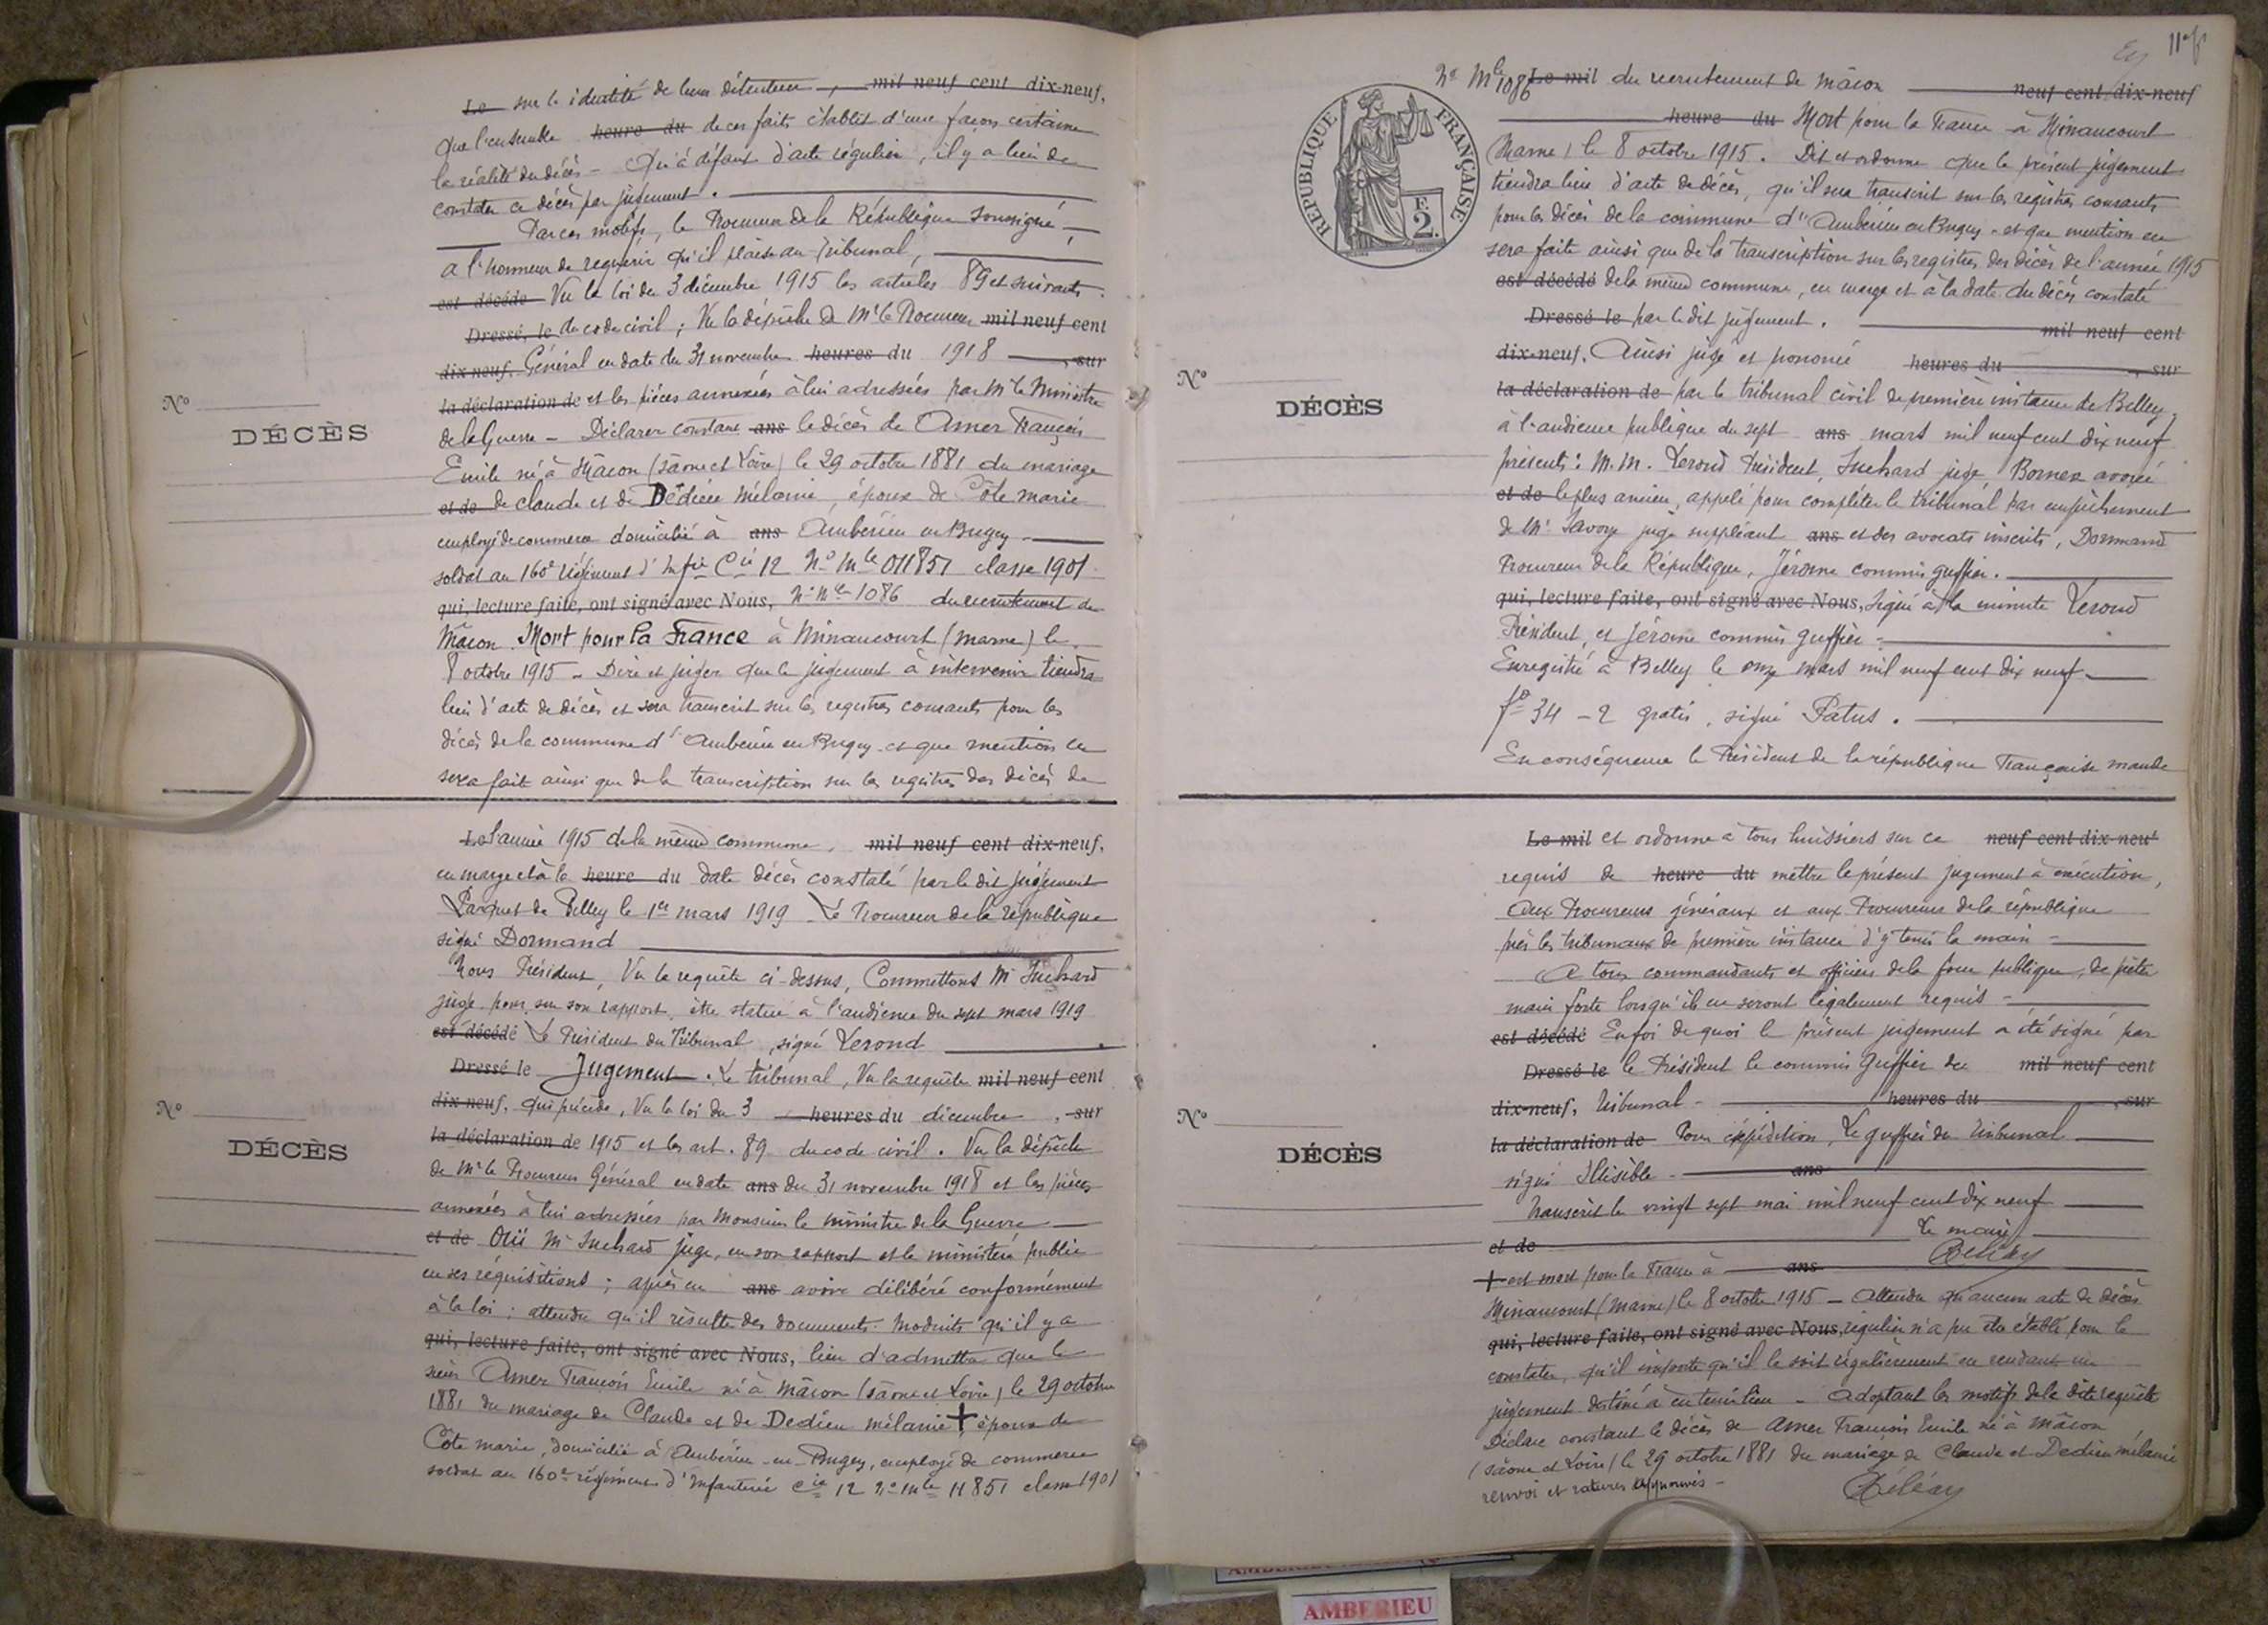 Le sur l'identité de leur détenteur, mil neuf cent dix-neuf,
que l'ensemble heure du de ces faits établit d'une façon certaine
la réalité du décès - Qu'à défaut d'acte régulier, il y a lieu de
constater ce décès par jugement.
Par ces motifs, le Procureur de la République soussigné,
a l'honneur de requérir qu'il plaise au Tribunal,
est décédé Vu la loi du 3 décembre 1915 les articles 89 et suivants
Dressé, le du code civil ; Vu la dépêche de Mr le Procureur mil neuf cent
dix-neuf, Général en date du 31 novembre heures du 1918 , sur
la déclaration de et les pièces annexées à lui adressées par Mr le Ministre
de la Guerre - Déclarer constant ans le décès de Amer François
Emile né à Mâcon (Saône et Loire) le 29 octobre 1881 du mariage
et de de Claude et de Dedieu Mélanie, époux de Côte marie
employé de commerce domicilié à ans Ambérieu en Bugey
soldat au 160e régiment d'Infie Cie 12 No Mle 011851 classe 1901
qui, lecture faite, ont signé avec Nous, No Mle 1086 du recrutement de
Mâcon. Mort pour la France à Minaucourt (marne) le
8 octobre 1915 - Dire et juger que le jugement à intervenir tiendra
lieu d'acte de décès et sera transcrit sur les registres courants pour les
décès de la commune d'Ambérieu en Bugey et que mention en
sera fait ainsi que de la transcription sur les registres des décès de
No
DÉCÈS
Le l'année 1915 de la même commune, mil neuf cent dix-neuf,
en marge et à la heure du date décès constaté par le dit jugement
Parquet de Belley le 1er mars 1919 Le Procureur de la république
signé Dormand
Nous Président, Vu la requête ci-dessus, Commettons Mr Suchard
juge pour, sur son rapport, être statué à l'audience du sept mars 1919
est décédé Le Président du Tribunal, signé Lerond
Dressé le Jugement. Le tribunal, Vu la requête mil neuf cent
dix-neuf, qui précède, Vu la loi du 3 heures du décembre , sur
la déclaration de 1915 et les art. 89 du code civil. Vu la dépêche
de Mr le Procureur Général en date ans du 31 novembre 1918 et les pièces
annexées à lui adressées par Monsieur le ministre de la Guerre
et de Ouï Mr Suchard juge, en son rapport et le ministère public
en ses réquisitions ; après en ans avoir délibéré conformément
à la loi ; attendu qu'il résulte des documents produits qu'il y a
qui, lecture faite, ont signé avec Nous, lieu d'admettre que le
sieur Amer François Emile né à Mâcon (Saône et Loire) le 29 octobre
1881 du mariage de Claude et de Dedieu mélanie + époux de
Côte marie, domicilié à Ambérieu-en-Bugey, employé de commerce
soldat au 160e régiment d'Infanterie Cie 12 No Mle 11851 classe 1901
No
DÉCÈS
118
RÉPUBLIQUE FRANÇAISE
F. 2.
No Mle 1086 Le mil du recrutement de Mâcon neuf cent dix-neuf
heure du Mort pour la France à Minaucourt
(Marne) le 8 octobre 1915. Dit et ordonne que le présent jugement
tiendra lieu d'acte de décès, qu'il sera transcrit sur les registres courants
pour les décès de la commune d'Ambérieu en Bugey - et que mention en
sera faite ainsi que de la transcription sur les registres des décès de l'année 1915
est décédé de la même commune, en marge et à la date du décès constaté
Dressé le par le dit jugement. mil neuf cent
dix-neuf, Ainsi jugé et prononcé heures du , sur
la déclaration de par le tribunal civil de première instance de Belley,
à l'audience publique du sept ans mars mil neuf cent dix neuf
présents : M.M. Lerond Président, Suchard juge, Bornex avoué
et de le plus ancien, appelé pour compléter le tribunal par empêchement
de Mr Savoye juge suppléant ans et des avocats inscrits, Dormand
Procureur de la République, Jérome commis greffier.
qui, lecture faite, ont signé avec Nous, Signé à la minute Lerond
Président, et Jérome commis greffier -
Enregistré à Belley le onze mars mil neuf cent dix neuf
fo 34 - 2 gratis, signé Patus.
En conséquence le Président de la république Française mande
No
DÉCÈS
Le mil et ordonne à tous huissiers sur ce neuf cent dix-neuf
requis de heure du mettre le présent jugement à exécution,
Aux Procureurs généraux et aux Procureurs de la république
près les tribunaux de première instance d'y tenir la main -
A tous commandants et officiers de la force publique, de prêter
main forte lorsqu'ils en seront légalement requis -
est décédé En foi de quoi le présent jugement a été signé par
Dressé le le Président le commis Greffier du mil neuf cent
dix-neuf, Tribunal - heures du , sur
la déclaration de Pour expédition, Le greffier du Tribunal
signé Illisible - ans
Transcrit le vingt sept mai mil neuf cent dix neuf
Le maire,
et de
+ est mort pour la France à ans
Minaucourt (Marne) le 8 octobre 1915 - Attendu qu'aucun acte de décès
qui, lecture faite, ont signé avec Nous, régulier n'a pu être établi pour le
constater, qu'il importe qu'il le soit régulièrement en rendant un
jugement destiné à en tenir lieu - Adoptant les motifs de la dite requête
Déclare constant le décès de Amer François Emile né à Mâcon
(Saône et Loire) le 29 octobre 1881 du mariage de Claude et Dedieu mélanie
renvoi et ratures approuvés -
No
DÉCÈS
AMBERIEU